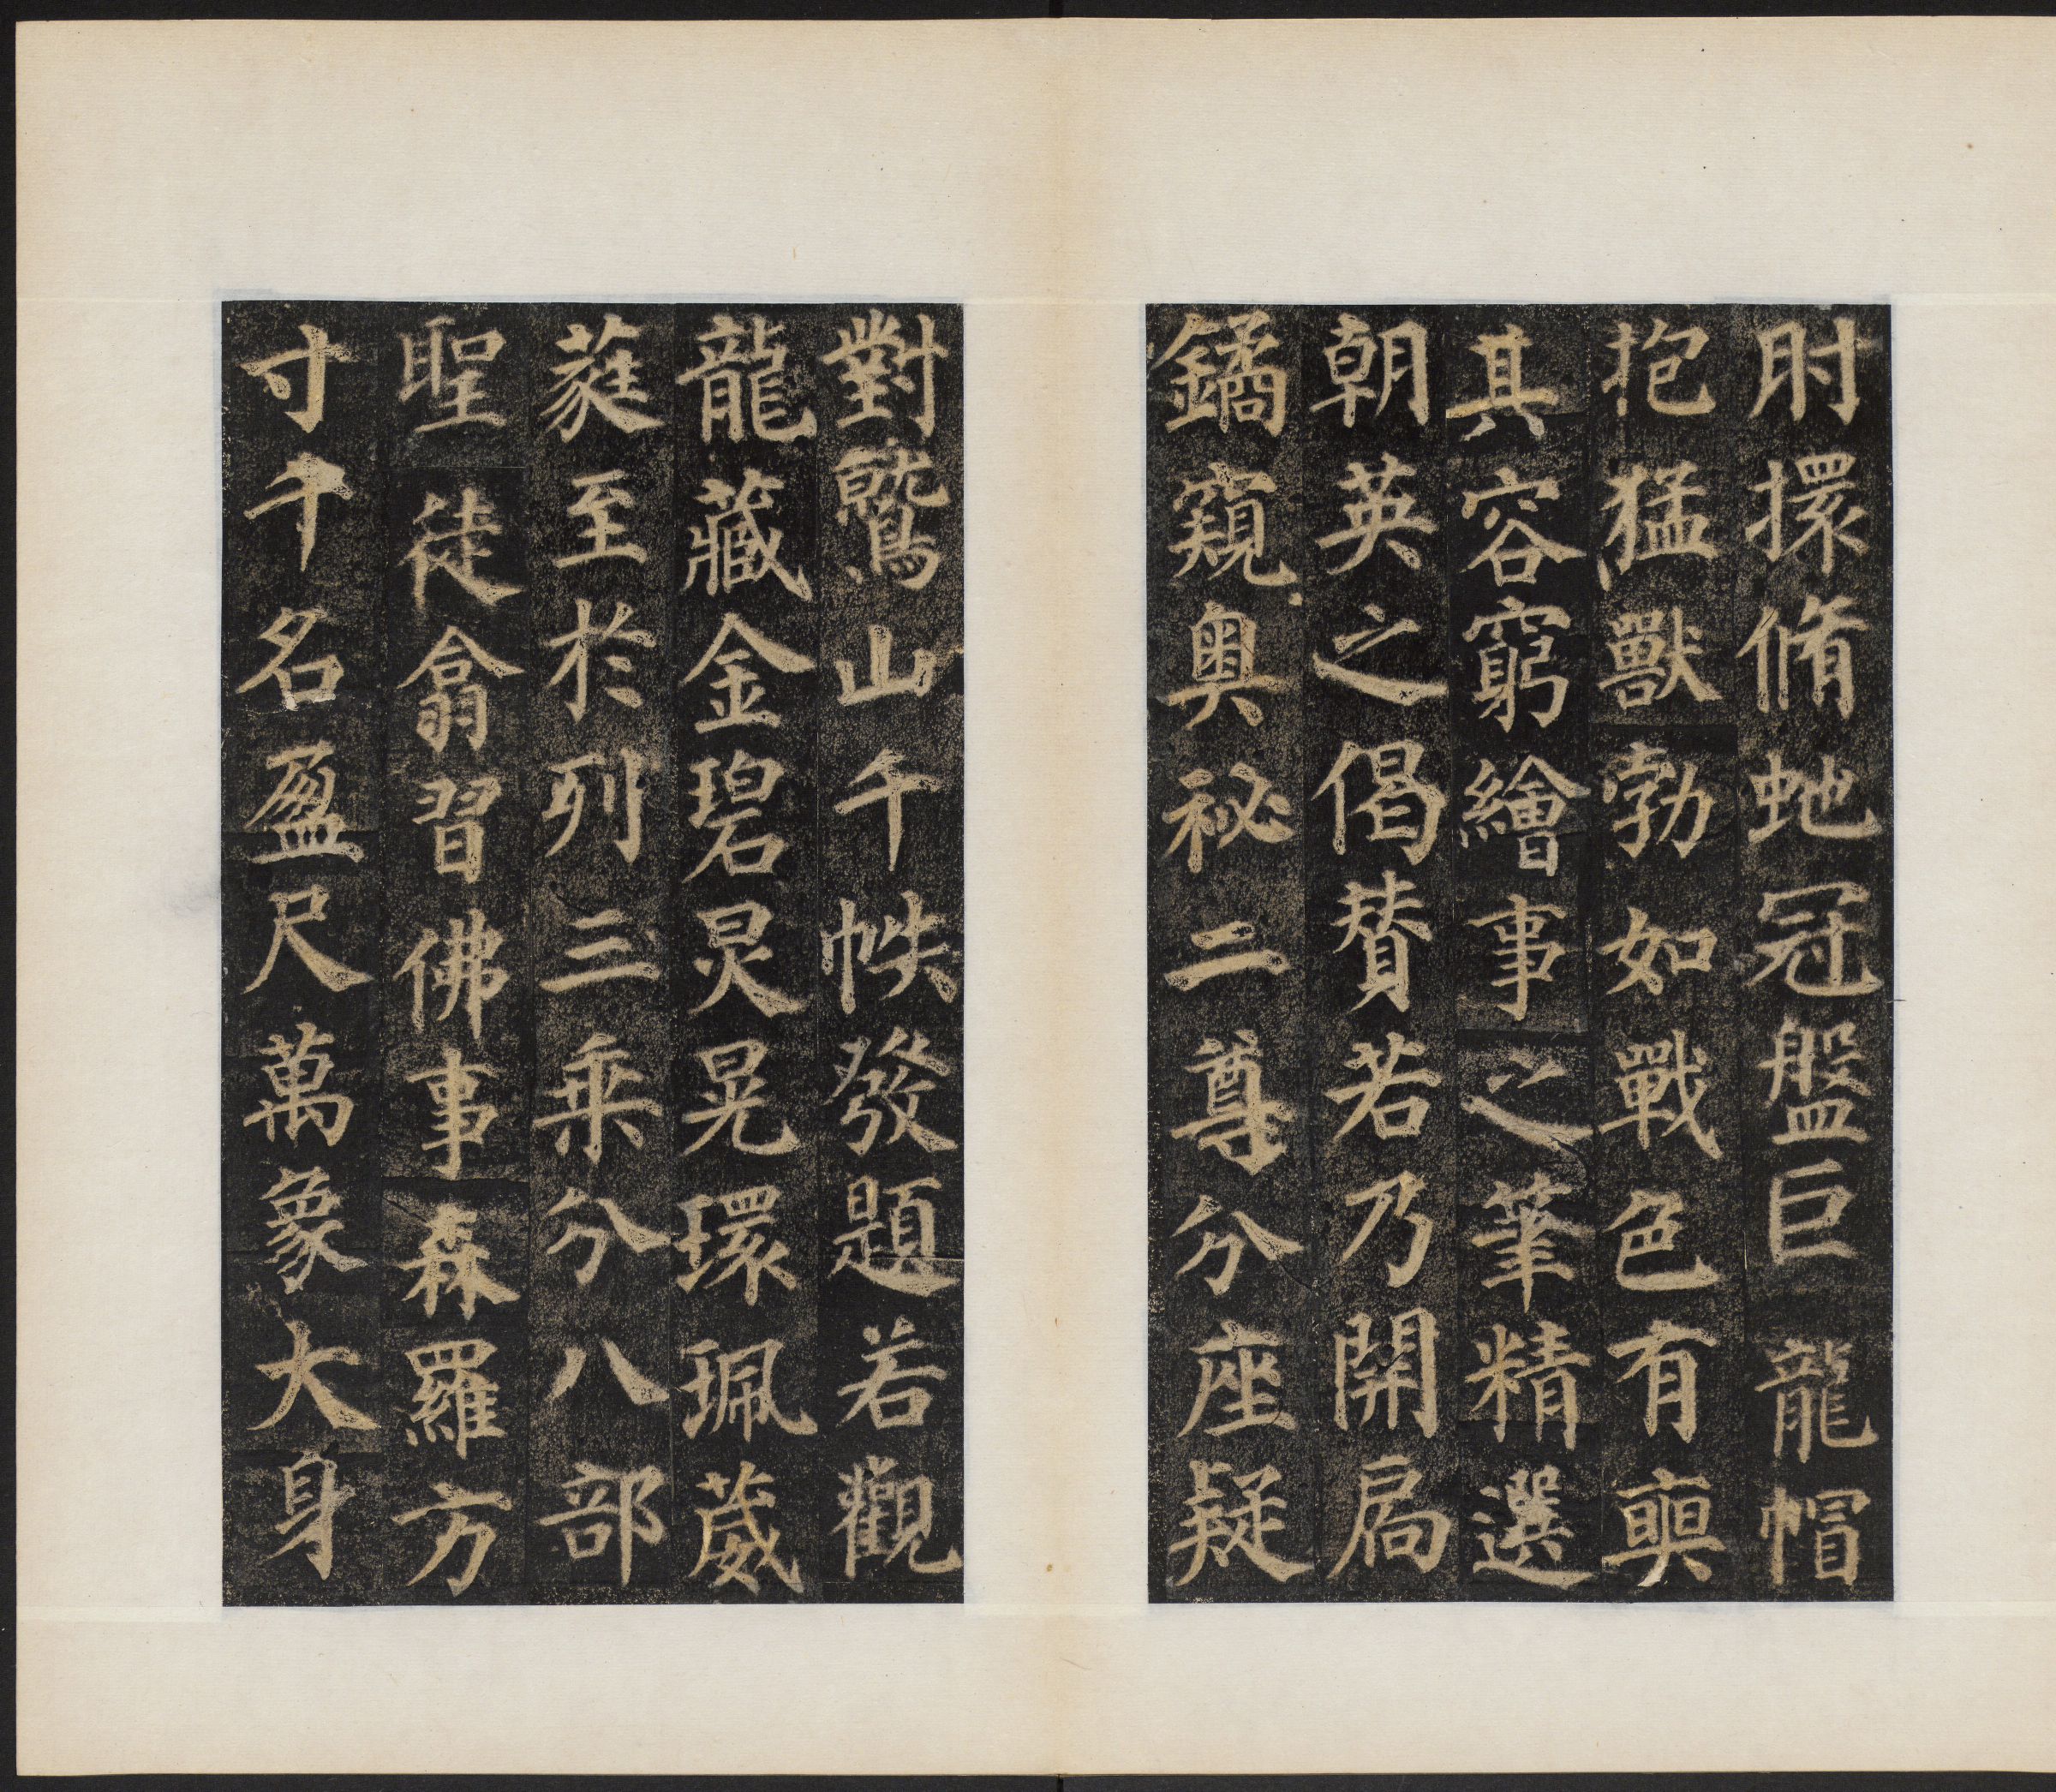 肘擐脩虵冠盤巨龍帽
抱猛獸勃如戰色有奭
其容窮繪事之筆精選
朝英之偈賛若乃開扃
鐍窺奥祕二尊分座疑
對鷲山千帙發題若觀
龍藏金碧炅晃環珮葳
蕤至於列三乗分八部
聖徒翕習佛事森羅方
寸千名盈尺萬象大身